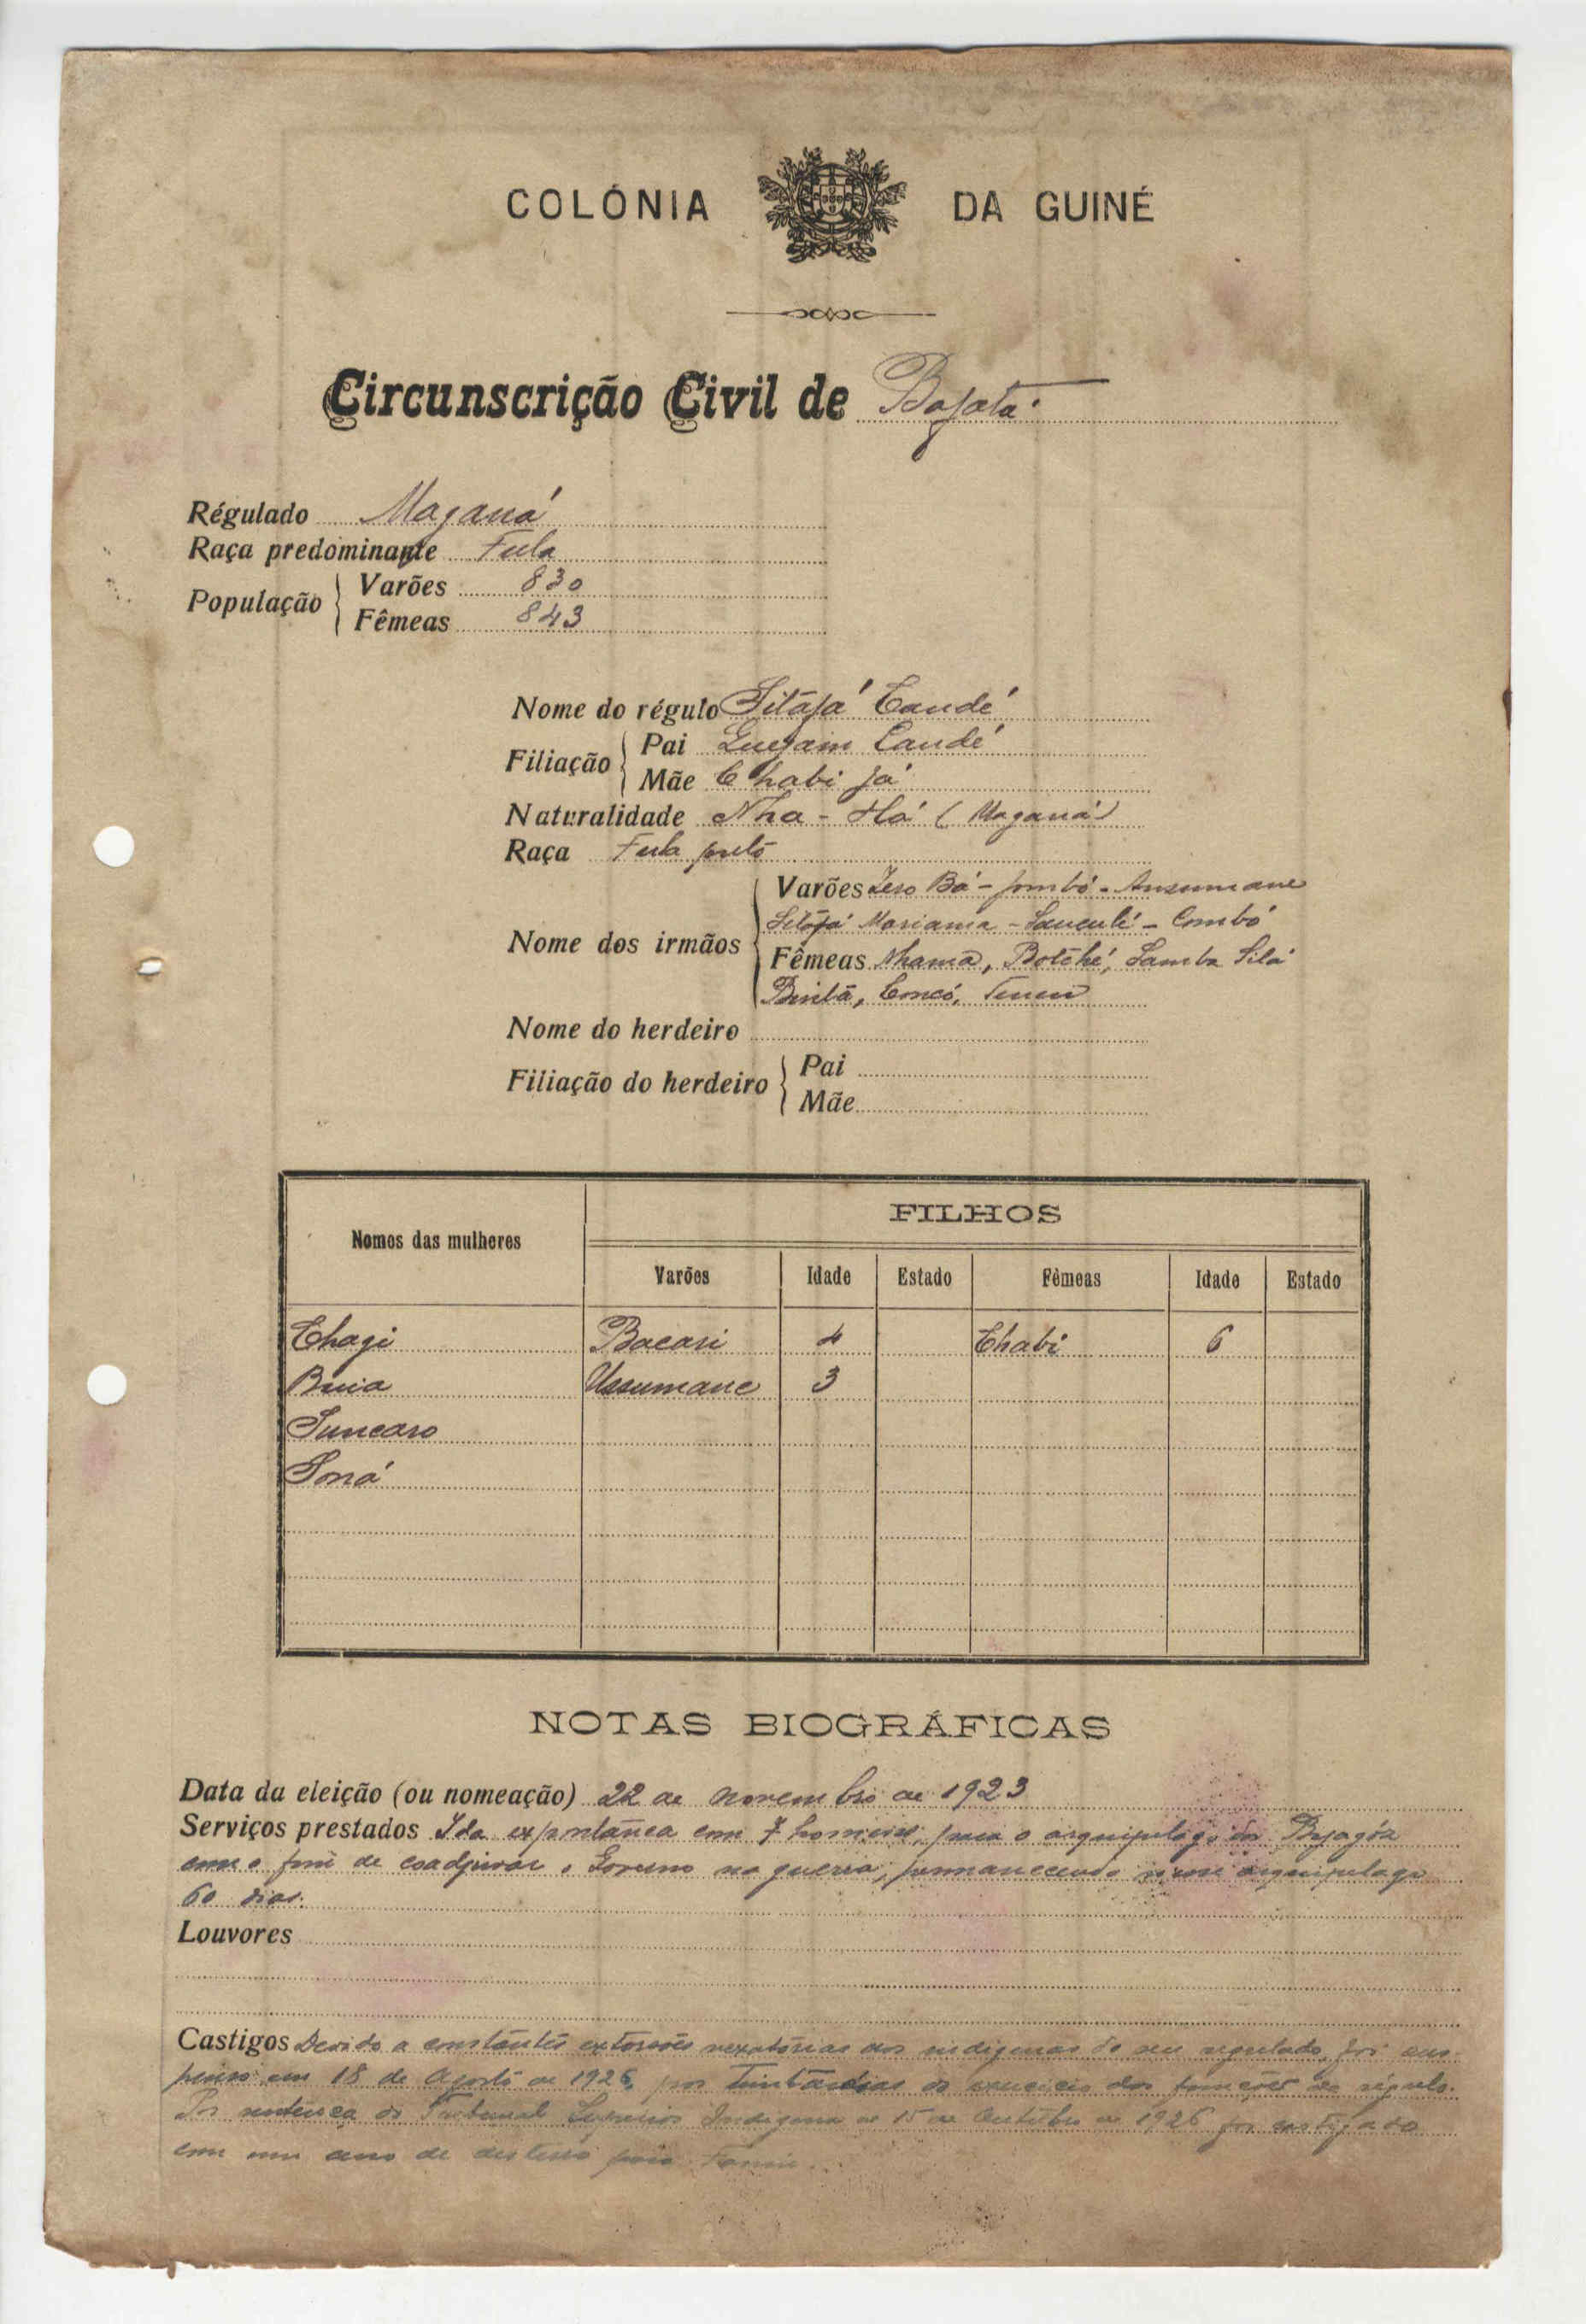 COLÓNIA DA GUINÉ
Circunscrição Civil de Bafatá
Régulado Maganá
Raça predominante Fula
População Varões 830
Fêmeas 843
Nome do régulo Sitáfá Candé
Filiação Pai Candé
Mãe Chabi Já
Naturalidade Nha-Há (Maganá)
Raça Fula preto
Nome dos irmãos Varões Bá - Jombó - Ansumane
Sitáfá Mariama - - Combó
Fêmeas Nhama, Botché, Samba Silá
Bintã, Concó,
Nome do herdeiro
Filiação do herdeiro Pai
Mãe
Nomes das mulheres FILHOS
Varões Idade Estado Fêmeas Idade Estado
Chagi Bacari 4 Chabi 6
Buia Ussumane 3
Suncaro
Soná
NOTAS BIOGRÁFICAS
Data da eleição (ou nomeação) 22 de novembro de 1923
Serviços prestados Ida expontânea com 7 homens para o arquipélago dos Bijagóz
com o fim de coadjuvar o Governo na guerra, permanecendo nesse arquipelago
60 dias.
Louvores
Castigos Devido a constantes extorsões vexatórias aos indigenas do seu regulado, foi sus-
penso em 18 de Agosto de 1926, por trinta dias do exercicio das funções de régulo.
Por sentença do Tribunal Superior Indigena de 15 de Outubro de 1926 foi castigado
com um ano de desterro para Farim.